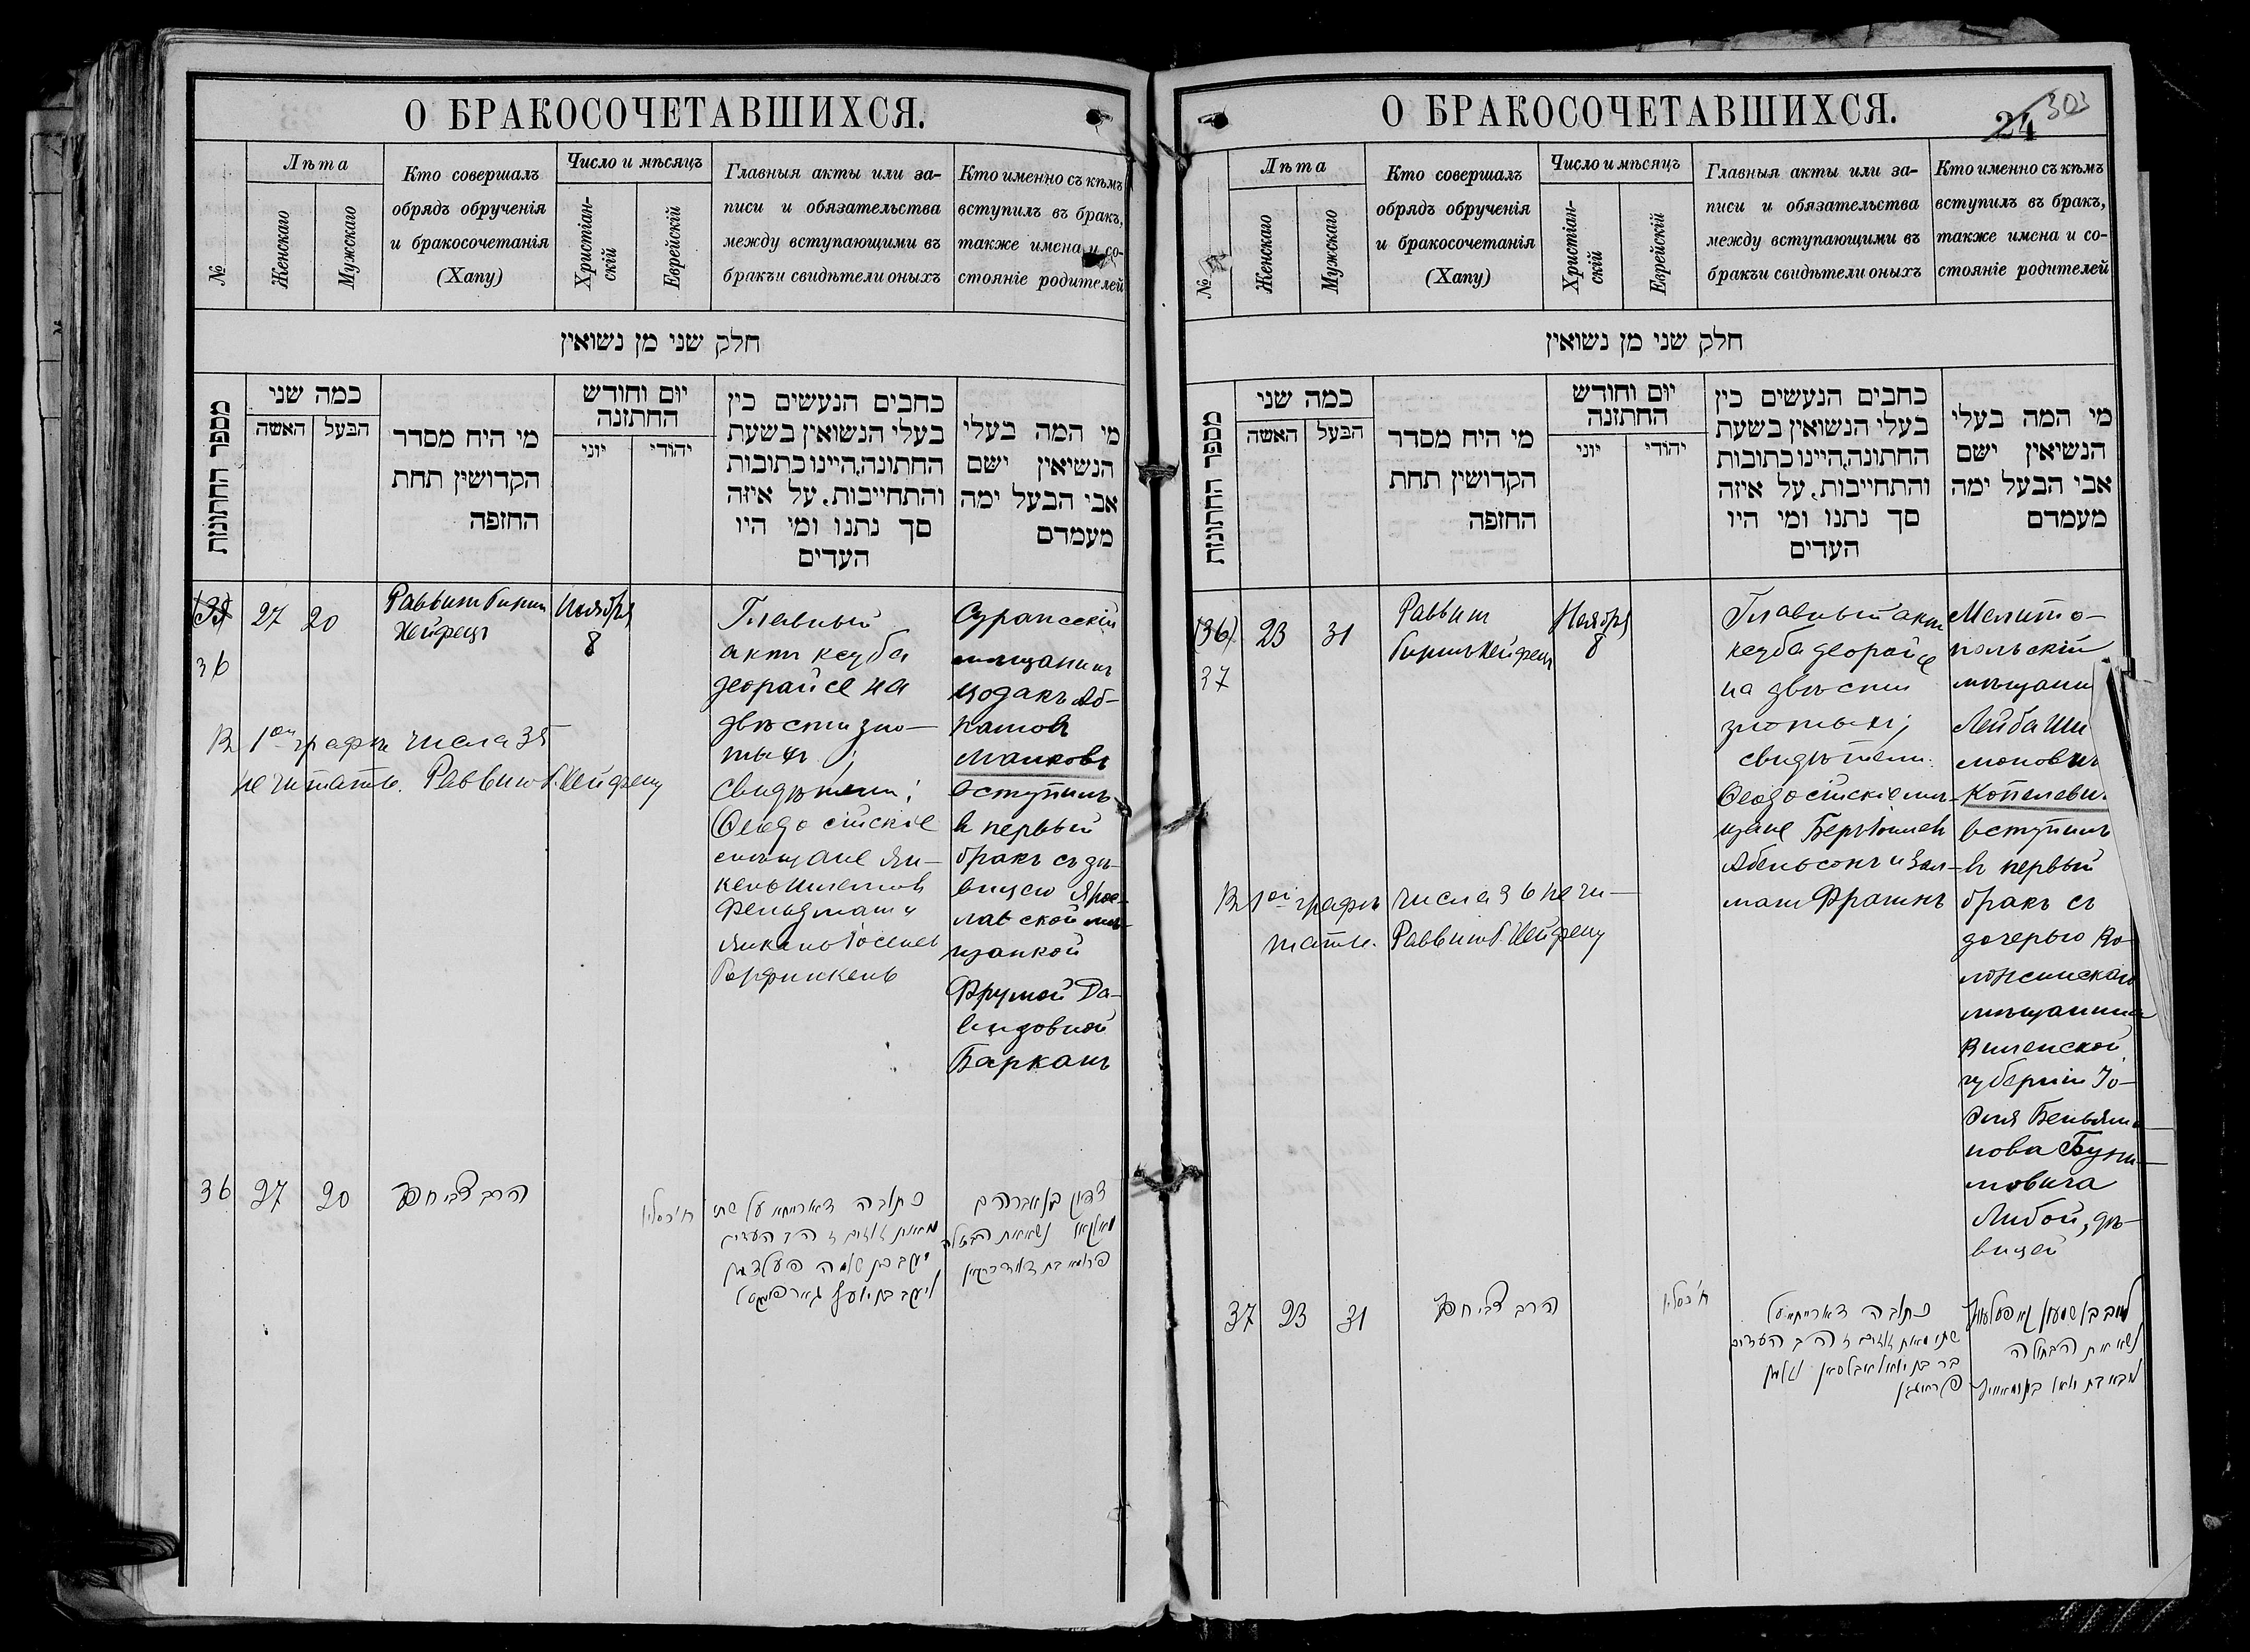 О БРАКОСОЧЕТАВШИХСЯ.
№
Лѣта
Женскаго
Мужскаго
Кто совершалъ
обрядъ обрученія
и бракосочетанія
(Хапу)
Число и мѣсяцъ
Христіан-
скій
Еврейскій
Главныя акты или за-
писи и обязательства
между вступающими въ
бракъи свидѣтели оныхъ
Кто именно съ кѣмъ
вступилъ въ бракъ,
также имена и со-
стояніе родителей
חלק שני מן נשואין
מספר החתונות
כמה שני
האשה
הבעל
מי היח מסדר
הקדושין תחת
החופה
יום וחודש
החתונה
יוני
יהודי
כתבים הנעשים כין
בעלי הנשואין בשעת
החתונה,היינו כתובות
והתחייבות, על איזה
סך נתנו ומי היו
העדים
מי המה בעלי
הנשיאין ישם
אבי הבעל ימה
מעמדם
(35)
36
27
20
Раввинъ Гиршъ
Хейфецъ
Ноября
8
Главный
актъ кецуба
деорайсе на
двѣсти зло-
тыхъ;
свидѣтели:
Ѳеодосійскіе
мѣщане Ян-
кель Шлемовъ
Фельдманъ и
Янкель Іоселевъ
Гарфинкель
мѣщанинъ
Цодакъ Аб-
рамовъ
Маиковъ
вступилъ
въ первый
бракъ съ дѣ-
вицею Яросл-
лавской мѣ-
щанкой
Фрумой Да-
видовной
Барканъ
Въ 1ой графѣ числа 35
не читать. Раввинъ Г. Хейфецъ
36
27
20
הרב צבי חפץ
ח׳ כסליו
כתובה דאורייתא על שתי
מאות זוזים
О БРАКОСОЧЕТАВШИХСЯ.
24
303
№
Лѣта
Женскаго
Мужскаго
Кто совершалъ
обрядъ обрученія
и бракосочетанія
(Хапу)
Число и мѣсяцъ
Христіан-
скій
Еврейскій
Главныя акты или за-
писи и обязательства
между вступающими въ
бракъи свидѣтели оныхъ
Кто именно съ кѣмъ
вступилъ въ бракъ,
также имена и со-
стояніе родителей
חלק שני מן נשואין
מספר החתונות
כמה שני
האשה
הבעל
מי היח מסדר
הקדושין תחת
החופה
יום וחודש
החתונה
יוני
יהודי
כתבים הנעשים כין
בעלי הנשואין בשעת
החתונה,היינו כתובות
והתחייבות, על איזה
סך נתנו ומי היו
העדים
מי המה בעלי
הנשיאין ישם
אבי הבעל ימה
מעמדם
(36)
37
23
31
Раввинъ
Гиршъ Хейфецъ
Ноября
8
Главный актъ
кецуба деорайсе
на двѣсти
злотыхъ;
свидѣтели:
Ѳеодосійскіе мѣ-
щане Беръ Іоилевъ
Абельсонъ и Зал-
манъ Фрадкинъ
Мелито-
польскій
мѣщани
Лейба Ши
моновъ
Копелеви
вступилъ
въ первый
бракъ съ
дочерью Во-
ложинскаго
мѣщанина
Виленской
губерніи Іо-
эля Беньями-
нова Буни-
мовича
Либой, дѣ-
вицей
Въ 1ой графѣ числа 36 не чи-
тать. Раввинъ Г. Хейфецъ
37
23
31
הרב צבי חפץ
ח׳ כסליו
כתובה דאורייתא על
שתי מאות זוזים